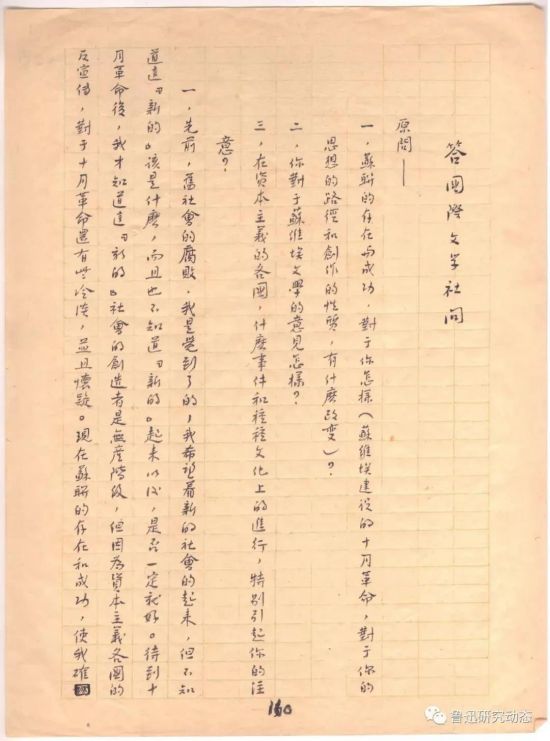 答國際文学社问
原問——
一，蘇聯的存在与成功，對于你怎樣（蘇維埃建设的十月革命，對于你的
思想的路徑和創作的性質，有什麽改变）？
二，你對于蘇維埃文學的意見怎樣？
三，在资本主義的各國，什麽事件和種種文化上的進行，特别引起你的注
意？
一，先前，舊社會的腐敗，我是觉到了的，我希望着新的社會的起来，但不知
道這『新的』该是什麽，而且也不知道『新的』起来以後，是否一定就好。待到十
月革命後，我才知道這『新的』社會的創造者是無産階级，但因為資本主義各國的
反宣傳，對于十月革命還有些冷淡，並且懷疑。现在蘇聯的存在和成功，使我確
160
鲁迅研究动态